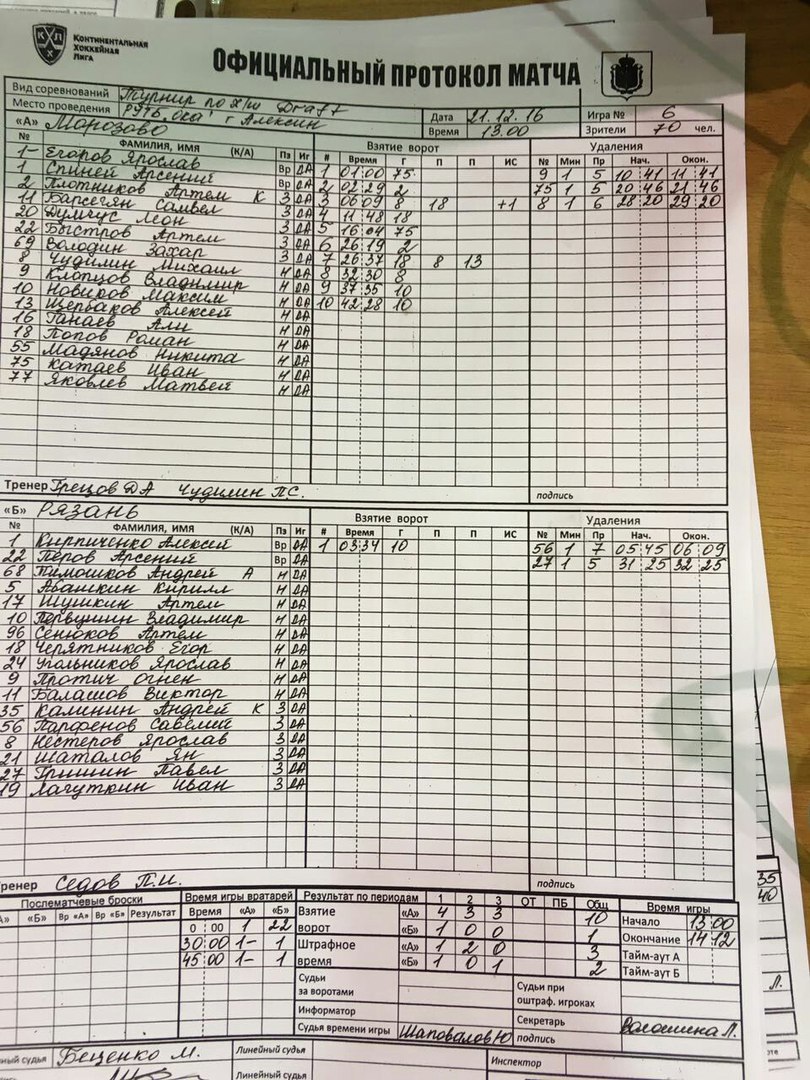 КОНТИНЕНТАЛЬНАЯ
ХОККЕЙНАЯ
ЛИГА
ОФИЦИАЛЬНЫЙ ПРОТОКОЛ МАТЧА
Вид соревнований Турнир по х/ш Draft
Место проведения РУТБ "Ока" г Алексин Дата 21.12.16 Игра № 6
«А» Морозово Время 13.00 Зрители 70 чел.
№ ФАМИЛИЯ, ИМЯ (К/А) Пз Иг Взятие ворот Удаления
# Время Г П П ИС № Мин Пр Нач. Окон.
1- Егоров Ярослав Вр ДА 1 01:00 75 9 1 5 10:41 11:41
1 Спиней Арсений Вр ДА 2 02:29 2 75 1 5 20:46 21:46
2 Плотников Артем К З ДА 3 06:09 8 18 +1 8 1 6 28:20 29:20
11 Барсегян Самвел З ДА 4 11:48 18
20 Думчус Леон З ДА 5 16:04 75
22 Быстров Артем З ДА 6 26:19 2
69 Володин Захар З ДА 7 26:37 18 8 13
8 Чудилин Михаил Н ДА 8 32:30 8
9 Клопцов Владимир Н ДА 9 37:35 10
10 Новиков Максим Н ДА 10 42:28 10
13 Щербаков Алексей Н ДА
16 Танаев Али Н ДА
18 Попов Роман Н ДА
55 Мадянов Никита Н ДА
75 Катаев Иван Н ДА
77 Яковлев Матвей Н ДА
Тренер Грецов ДА Чудилин П.С. подпись
«Б» Рязань Взятие ворот Удаления
№ ФАМИЛИЯ, ИМЯ (К/А) Пз Иг # Время Г П П ИС № Мин Пр Нач. Окон.
1 Кирпиченко Алексей Вр ДА 1 03:34 10 56 1 7 05:45 06:09
22 Перов Арсений Вр ДА 27 1 5 31:25 32:25
68 Тимошков Андрей А Н ДА
5 Абашкин Кирилл Н ДА
17 Шушкин Артем Н ДА
10 Первушин Владимир Н ДА
96 Сенюков Артем Н ДА
18 Черятников Егор Н ДА
24 Угольников Ярослав Н ДА
9 Протич Огнен Н ДА
11 Балашов Виктор Н ДА
35 Калинин Андрей К З ДА
56 Парфенов Савелий З ДА
8 Нестеров Ярослав З ДА
21 Шаталов Ян З ДА
27 Гришин Павел З ДА
19 Лагуткин Иван З ДА
Тренер Седов П.И. подпись
Послематчевые броски Время игры вратарей Результат по периодам 1 2 3 ОТ ПБ Общ Время игры
«А» «Б» Вр «А» Вр «Б» Результат Время «А» «Б» Взятие ворот «А» 4 3 3 10 Начало 13:00
0:00 1 22 «Б» 1 0 0 1 Окончание 14:12
30:00 1- 1 Штрафное время «А» 1 2 0 3 Тайм-аут А
45:00 1- 1 «Б» 1 0 1 2 Тайм-аут Б
Судьи за воротами Судьи при оштраф. игроках
Информатор Секретарь Волошина Л.
Судья времени игры Шаповалов Ю подпись
судья Беценко М. Линейный судья Инспектор
Линейный судья